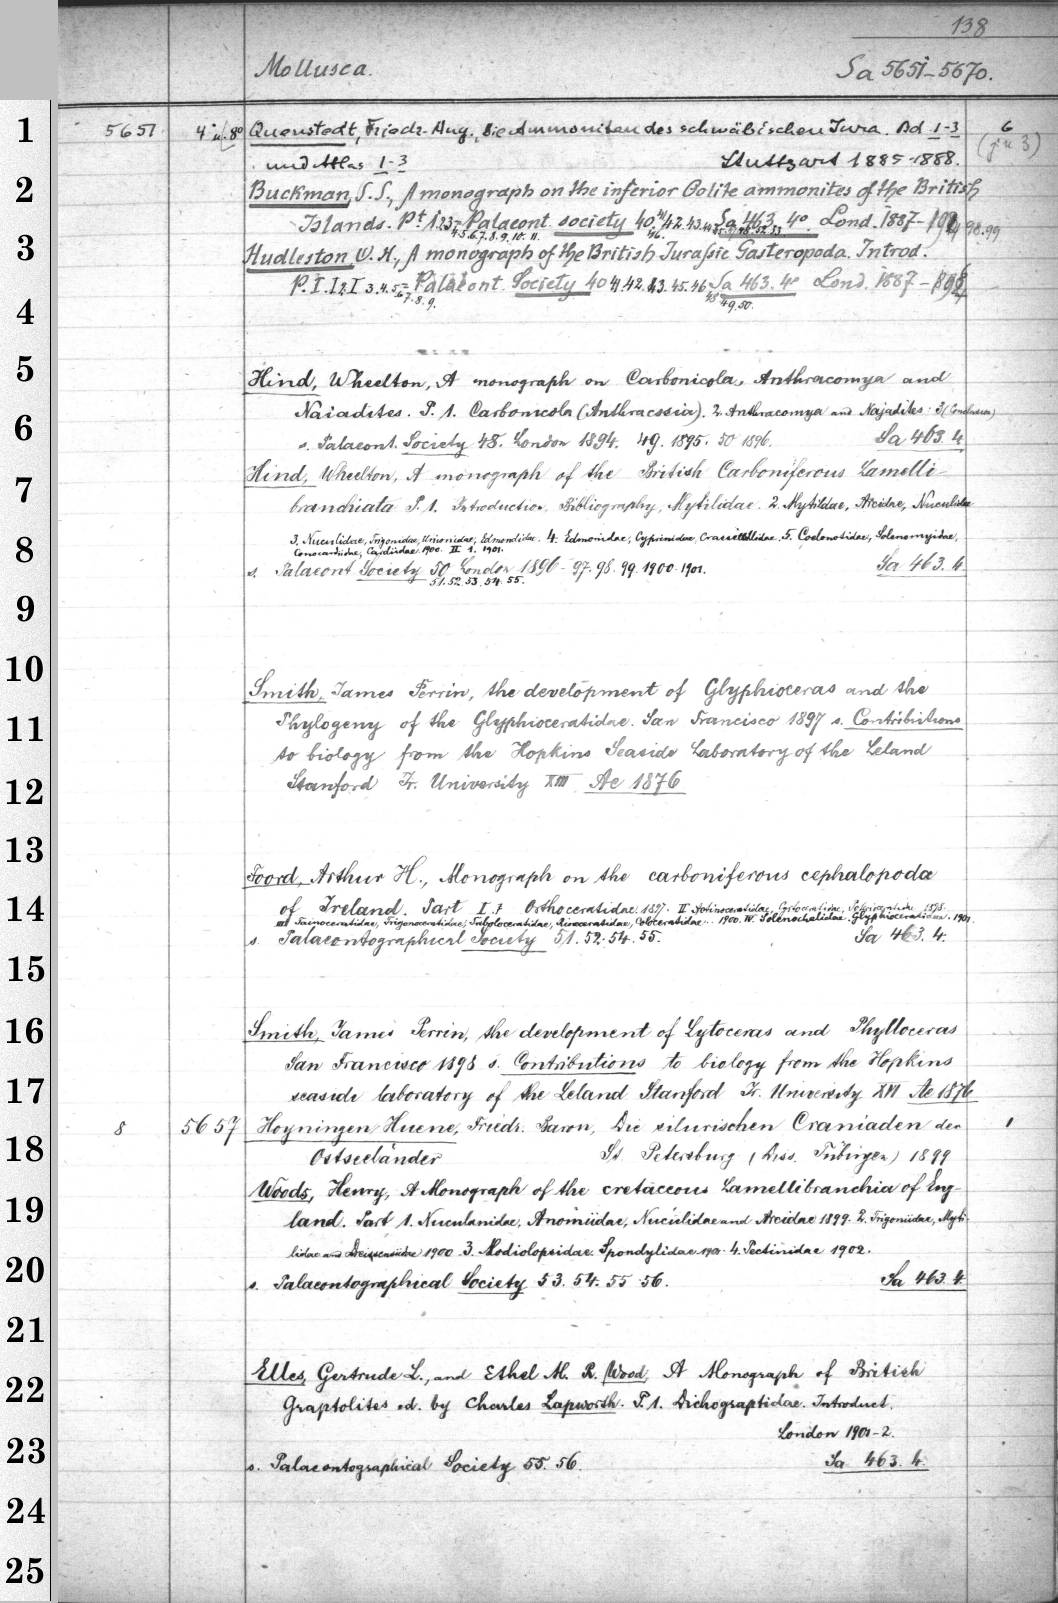 138
Mollusca. Sa 5651-5670.
1 5651 4° u. 8° Quenstedt, Friedr. Aug., Die Ammoniten des schwäbischen Jura. Bd 1-3 6
und Atlas 1-3 Stuttgart 1885-1888. (je 3)
2 Buckman, S.S., A monograph on the inferior Oolite ammonites of the British
Islands. Pt 1. Palaeont. society 40. 42. 43. Sa 463. 4° Lond. 1887- 98.99
4.5.6.7.8.9.10.11. 46.
3 Hudleston, W.H., A monograph of the British Jurassic Gasteropoda. Introd.
P. I. 3.4.5. Palaeont. Society 40 41.42.43.45.46 Sa 463. 4° Lond. 1887-
6.7.8.9. 48 49.50.
4
5 Hind, Wheelton, A monograph on Carbonicola, Anthracomya and
Naiadites. P. 1. Carbonicola (Anthracosia). 2. Anthracomya and Najadites. 3 (Conclusion)
6 s. Palaeont. Society 48. London 1894. 49. 1895. 50 1896. Sa 463. 4
Hind, Wheelton, A monograph of the British Carboniferous Lamelli-
7 branchiata P. 1. Introduction, Bibliography, Mytilidae. 2. Mytildae, Arcidae, Nuculidae
3. Nuculidae, Trigonidae, Unionidae, Edmondidae. 4. Edmonidae, Cyprinidae, Crassitellidae. 5. Coelonotidae, Solenomyidae,
8 Conocardiidae, Cardiidae 1900. II 1. 1901.
s. Palaeont Society 50 London 1896-97.98.99.1900.1901. Sa 463. 4
51.52.53.54.55.
9
10 Smith, James Perrin, the development of Glyphioceras and the
11 Phylogeny of the Glyphioceratidae. San Francisco 1897 s. Contributions
to biology from the Hopkins Seaside Laboratory of the Leland
12 Stanford Jr. University XIII Ae 1876
13 Foord, Arthur H., Monograph on the carboniferous cephalopoda
14 of Ireland. Part I. Orthoceratidae 1897. II Actinoceratidae, Cyrtoceratidae, 1898.
III Tainoceratidae, Trigonoceratidae, 1900. IV. Solenochilidae. Glyphioceratidae. 1901.
s. Palaeontographical Society 51. 52. 54. 55. Sa 463. 4.
15
16 Smith, James Perrin, the development of Lytoceras and Phylloceras
San Francisco 1898 s. Contributions to biology from the Hopkins
17 seaside laboratory of the Leland Stanford Jr. University XVI Ae 1876
8 5657 Hoyningen Huene, Friedr. Baron, Die silurischen Craniaden der 1
18 Ostseeländer St. Petersburg (Diss. Tübingen) 1899
Woods, Henry, A Monograph of the cretaceous Lamellibranchia of Eng-
19 land. Part 1. Nuculanidae, Anomiidae, Nuculidae and Arcidae 1899. 2. Trigoniidae, Myti-
lidae and 1900. 3. Modiolopsidae. Spondylidae 1901. 4. Pectinidae 1902.
20 s. Palaeontographical Society 53. 54. 55 56. Sa 463. 4
21
22 Elles, Gertrude L., and Ethel M. R. Wood, A Monograph of British
Graptolites ed. by Charles Lapworth. P. 1. Dichograptidae. Introduct.
London 1901-2.
23 s. Palaeontographical Society 55. 56. Sa 463. 4.
24
25